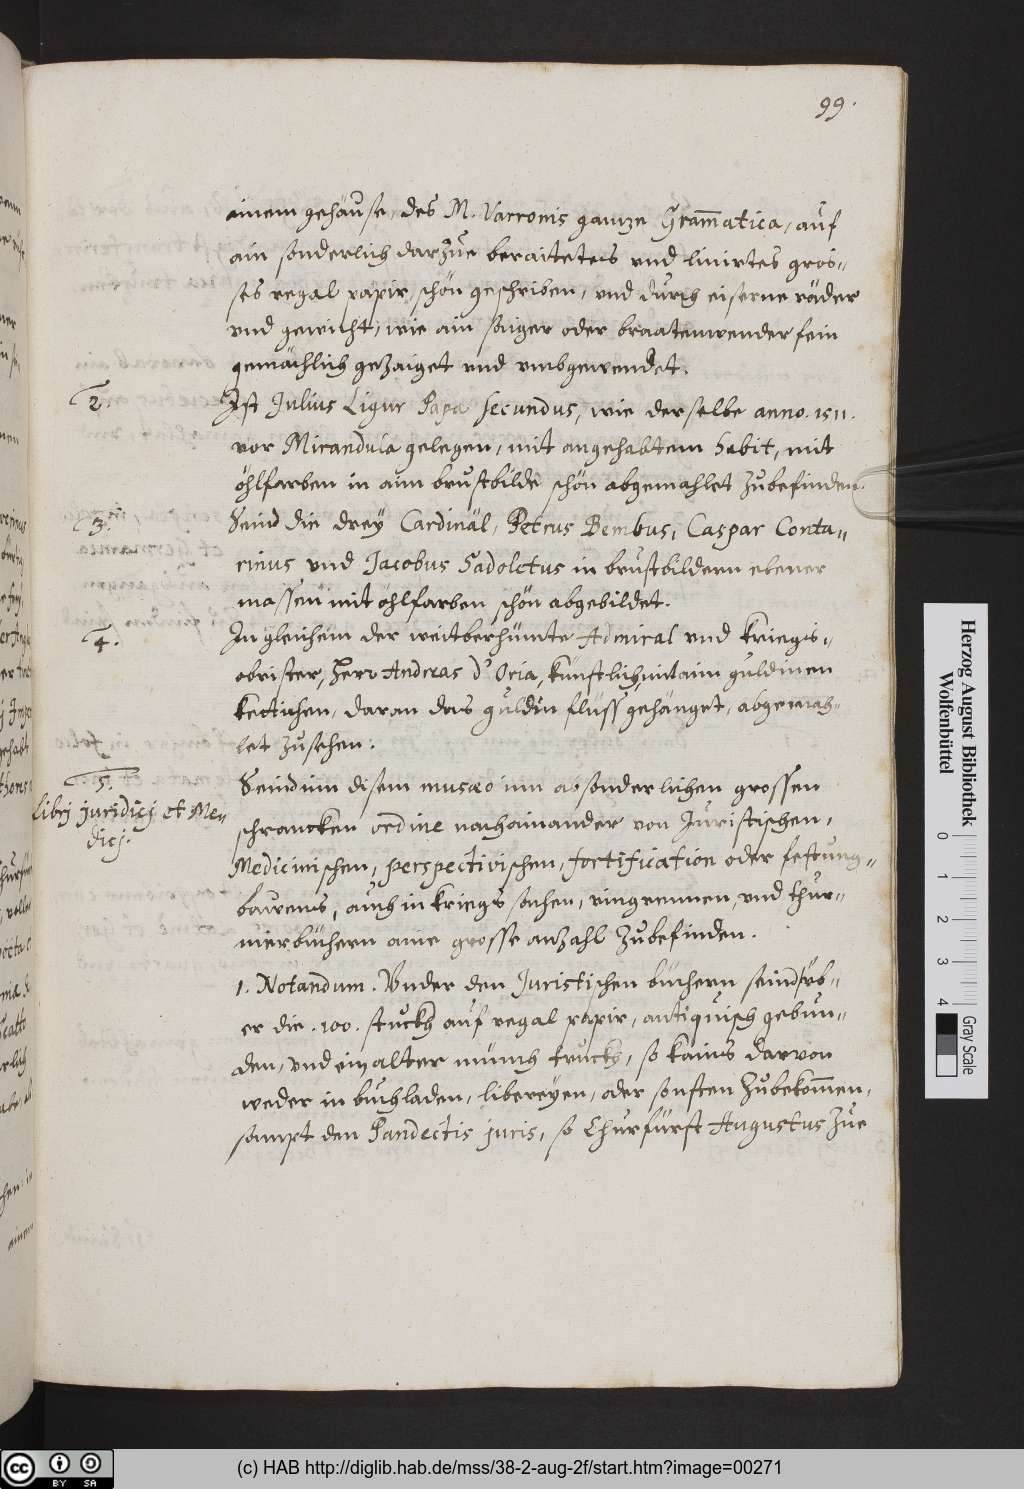 99.
einem gehäuse, des M. Varronis gantze Gram̄atica, auf
ain sonderlich darzue beraitetes vnd linirtes gros=
ses regal papir, schön geschriben, vnd durch eiserne räder
vnd gewicht, wie ain saiger oder braatenwender fein
gemächlich gezaiget vnd vmbgewendet.
2.
Ist Julius Ligur Papa secundus, wie derselbe anno. 1511.
vor Mirandula gelegen, mit angehabtem habit, mit
öhlfarben in aim brustbilde schön abgemahlet zubefinden.
3.
Seind die drey Cardinäl, Petrus Bembus, Caspar Conta=
renus vnd Jacobus Sadoletus in brustbildern ebener
massen mit öhlfarben schön abgebildet.
4.
In gleichem der weitberhümte Admiral vnd kriegs=
obrister, Herr Andreas D'Oria, künstlich, mit aim guldinen
kettichen, daran das guldin flüss gehänget, abgemah=
let zusehen.
5.
Libri juridici et Me=
dici.
Seind in disem musæo inn absonderlichen grossen
schrancken ordine nacheinander von Juristischen,
Medicinischen, perspectivischen, fortification oder festung=
bawens, auch in kriegs sachen, ringrennen, vnd thur=
nierbüchern aine grosse anzahl zubefinden.
1. Notandum. Vnder den Juristischen büchern seind v̈b=
er die .100. stuckh auf regal papir, antiquisch gebun=
den, vnd ein alter münch truckh, so kains darvon
weder in buchladen, libereyen, oder sonsten zubekom̄en,
sampt den Pandectis juris, so Churfürst Augustus zue
Herzog August Bibliothek
Wolfenbüttel
0 1 2 3 4
Gray Scale
cc BY SA
(c) HAB http://diglib.hab.de/mss/38-2-aug-2f/start.htm?image=00271